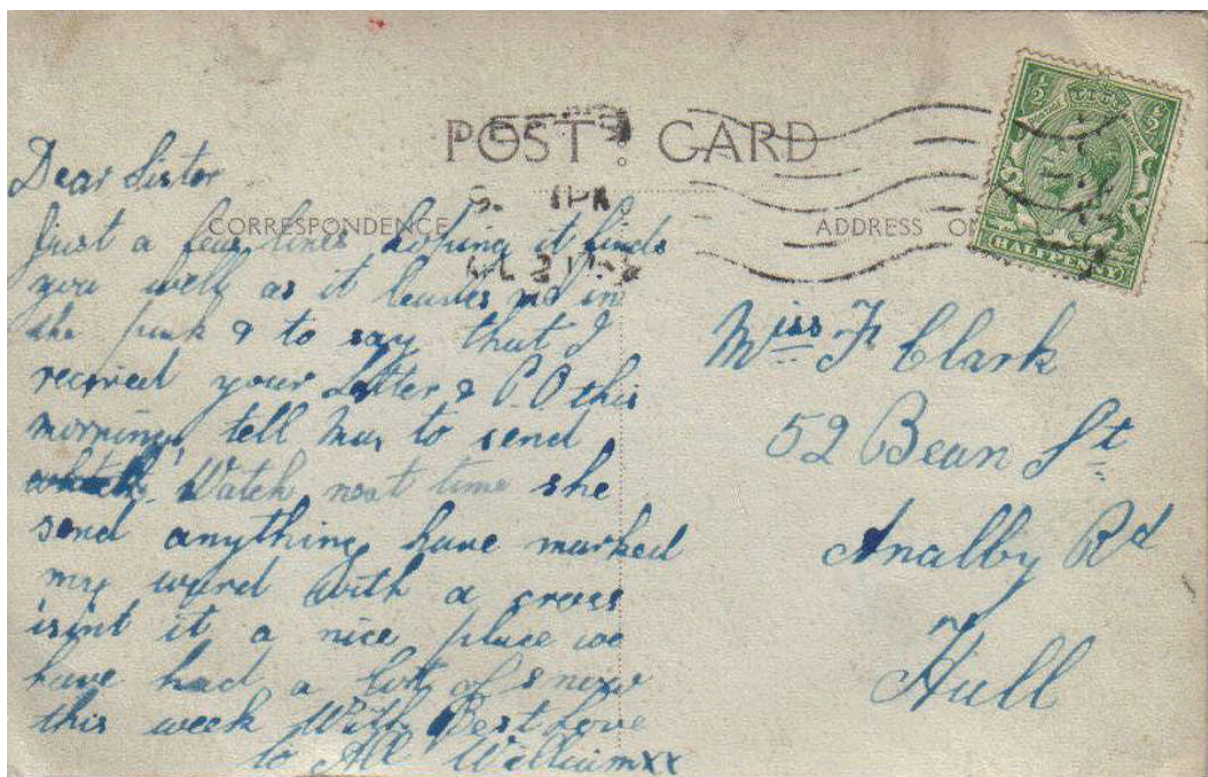 POST CARD
CORRESPONDENCE
ADDRESS ON
1PM
½ ½
HALFPENNY
Dear Sister
Just a few lines hoping it finds
you well as it leaves me in
the pink & to say that I
received your Letter & P.O this
morning, tell Mus to send
Watch next time she
send anything have marked
my ward with a cross
isint it a nice place we
have had a lot of snow
this week With Best Love
to All William xx
Miss F Clark
52 Bean St
Analby Rd
Hull